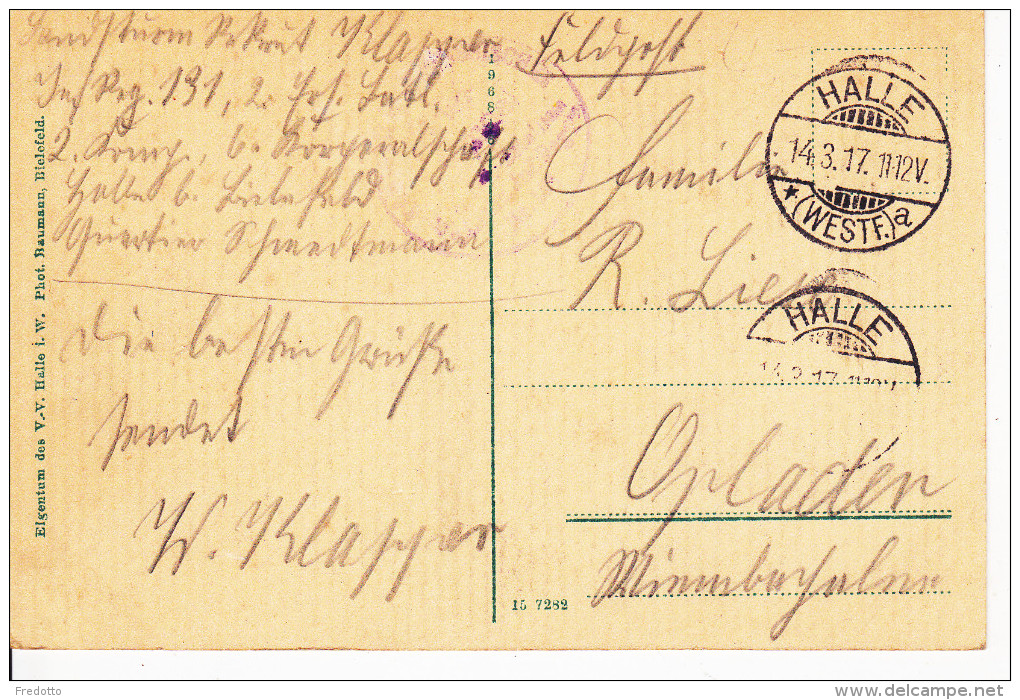 Landsturm Rekrut Klapper
Inf. Reg. 131, 2. Ers. Batl.
2. Komp., 6. Korporalschaft
Halle b. Bielefeld
Quartier Schwedtmann
Die besten Grüße
sendet
W. Klapper
Feldpost
Familie
R.
Opladen
HALLE
14.3.17. 11-12V.
* (WESTF.) a
HALLE
14.3.17. 11-12V
Eigentum des V.-V. Halle i. W. Phot. Baumann, Bielefeld.
1968
15 7282
Fredotto
www.delcampe.net